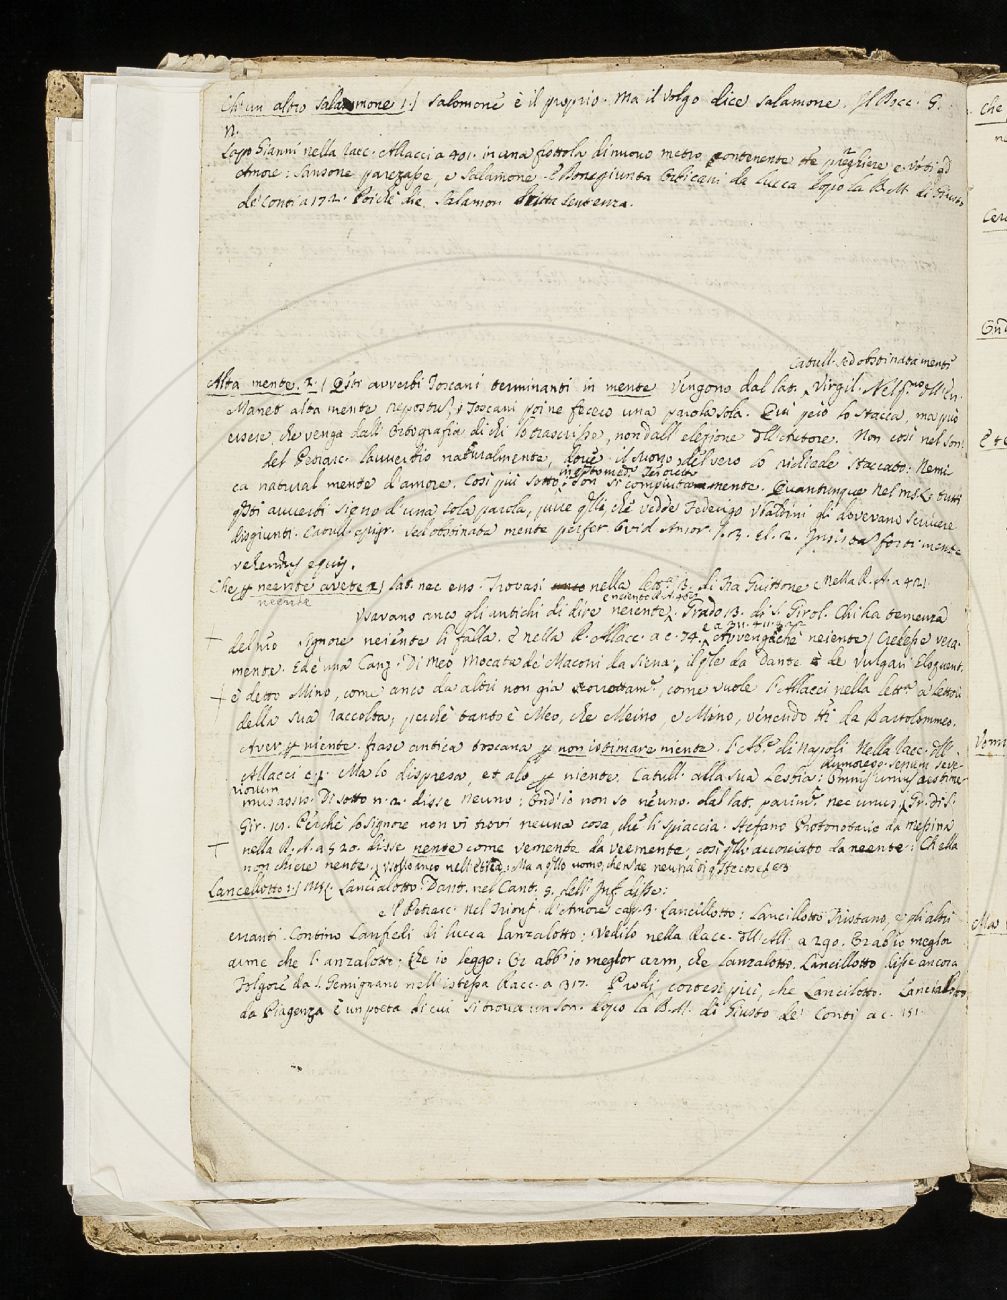 Ch' un altro Salamone 1.) Salomone è il proprio. Ma il volgo dice Salamone. Il Bocc. G.
n.
Lapo Gianni nella Racc. Allacci a 401. in una frottola di nuovo metro contenente preghiere e voti ad
Amore: Sansone pareggasse, e Salamone. E Bonagiunta Orbicani da Lucca dopo la B. M. di Giusto
de' Conti a 172. Poichè die Salamon dritta sentenza.
Catull. ad obstinata mente
Alta mente. 2.) Qsti avverbi Toscani terminanti in mente vengono dal lat. Virgil. Nel
Manet alta mente repostum, i Toscani poi ne fecero una parola sola. Qui però lo stacca, ma può
essere, che venga dall' Ortografia di chi lo trascrisse, non dall' elezione dell' Autore. Non così nel Son.
del Petrarc. l'avverbio naturalmente, dove il suono del vero lo richiede staccato: Nemi
ca natural mente d'amore. Così più sotto: Son si compiuta mente. Quantunque nel ms. L. tutti
qsti avverbi sieno d'una sola parola, pure egli, che vedde Federigo Ubaldini gli dovevano scrivere
disgiunti. Catull. epigr. sed obstinata mente perfer. Ovid. Amor. l. 3. El. 2. Insistam forti mente
vehendus equis.
Che p neente avete 2) lat. nec ens. Trovasi nella lett. 13. di Fra Guittone e nella R. A. a 421.
neente
Usavano anco gli antichi di dire neiente. Grado 13. di S. Girol. Chi ha temenza
del suo Signore neiente li falla. E nella R. Allacc. a c. 74. Avvengachè neiente) Credesse vera-
mente. Ed è una Canz. di Meo Mocata de' Maconi da Siena, il qle da Dante de Vulgari Eloquent.
+ è detto Mino, come anco da altri non già scorrettamte, come vuole l'Allacci nella lettra a' Lettori
della sua raccolta, perchè tanto è Meo, che Meino, e Mino, venendo tti da Bartolommeo.
Aver p niente. frase antica toscana p non istimare niente. L'Abe di Napoli nella Racc. dll'
Allacci c. 1. Ma lo dispresa, et alo p niente. Catull. alla sua Lesbia: Omnes unius aestime-
rumoresq. senum seve-
riorum
mus assis. Di sotto n. 2. disse Neuno: Ond' io non so neuno. dal lat. parimte nec unus. Gr. di S.
Gir. 10. Perchè lo Signore non vi trovi neuna cosa, che li spiaccia. Stefano Protonotario da Messina
+ nella R. A. a 520. disse nente come vemente da veemente; così qlli accorciato da neente: Ch ella
non chiere nente.
Lancellotto 1.) Ms. L. Lancialotto. Dant. nel Cant. 5. dell' Inf. disse:
e 'l Petrarc. nel Trionf. d'Amore cap. 3. Lancillotto: Lancillotto Tristano, e gli altri
erranti. Contino Lanfredi di Lucca Lanzalotto: Vedilo nella Racc. dll' All. a 290. Er abb io meglor
arme che l'anzalotto. Che io leggo: Er abb' io meglor arm, che Lanzalotto. Lancillotto disse ancora
Folgore da S. Gemignano nell' istessa Racc. a 317. Prodi, cortesi più, che Lancilotto. Lancialotto
da Piagenza è un poeta di cui si trova un Son. dopo la B. M. di Giusto de' Conti a c. 151.